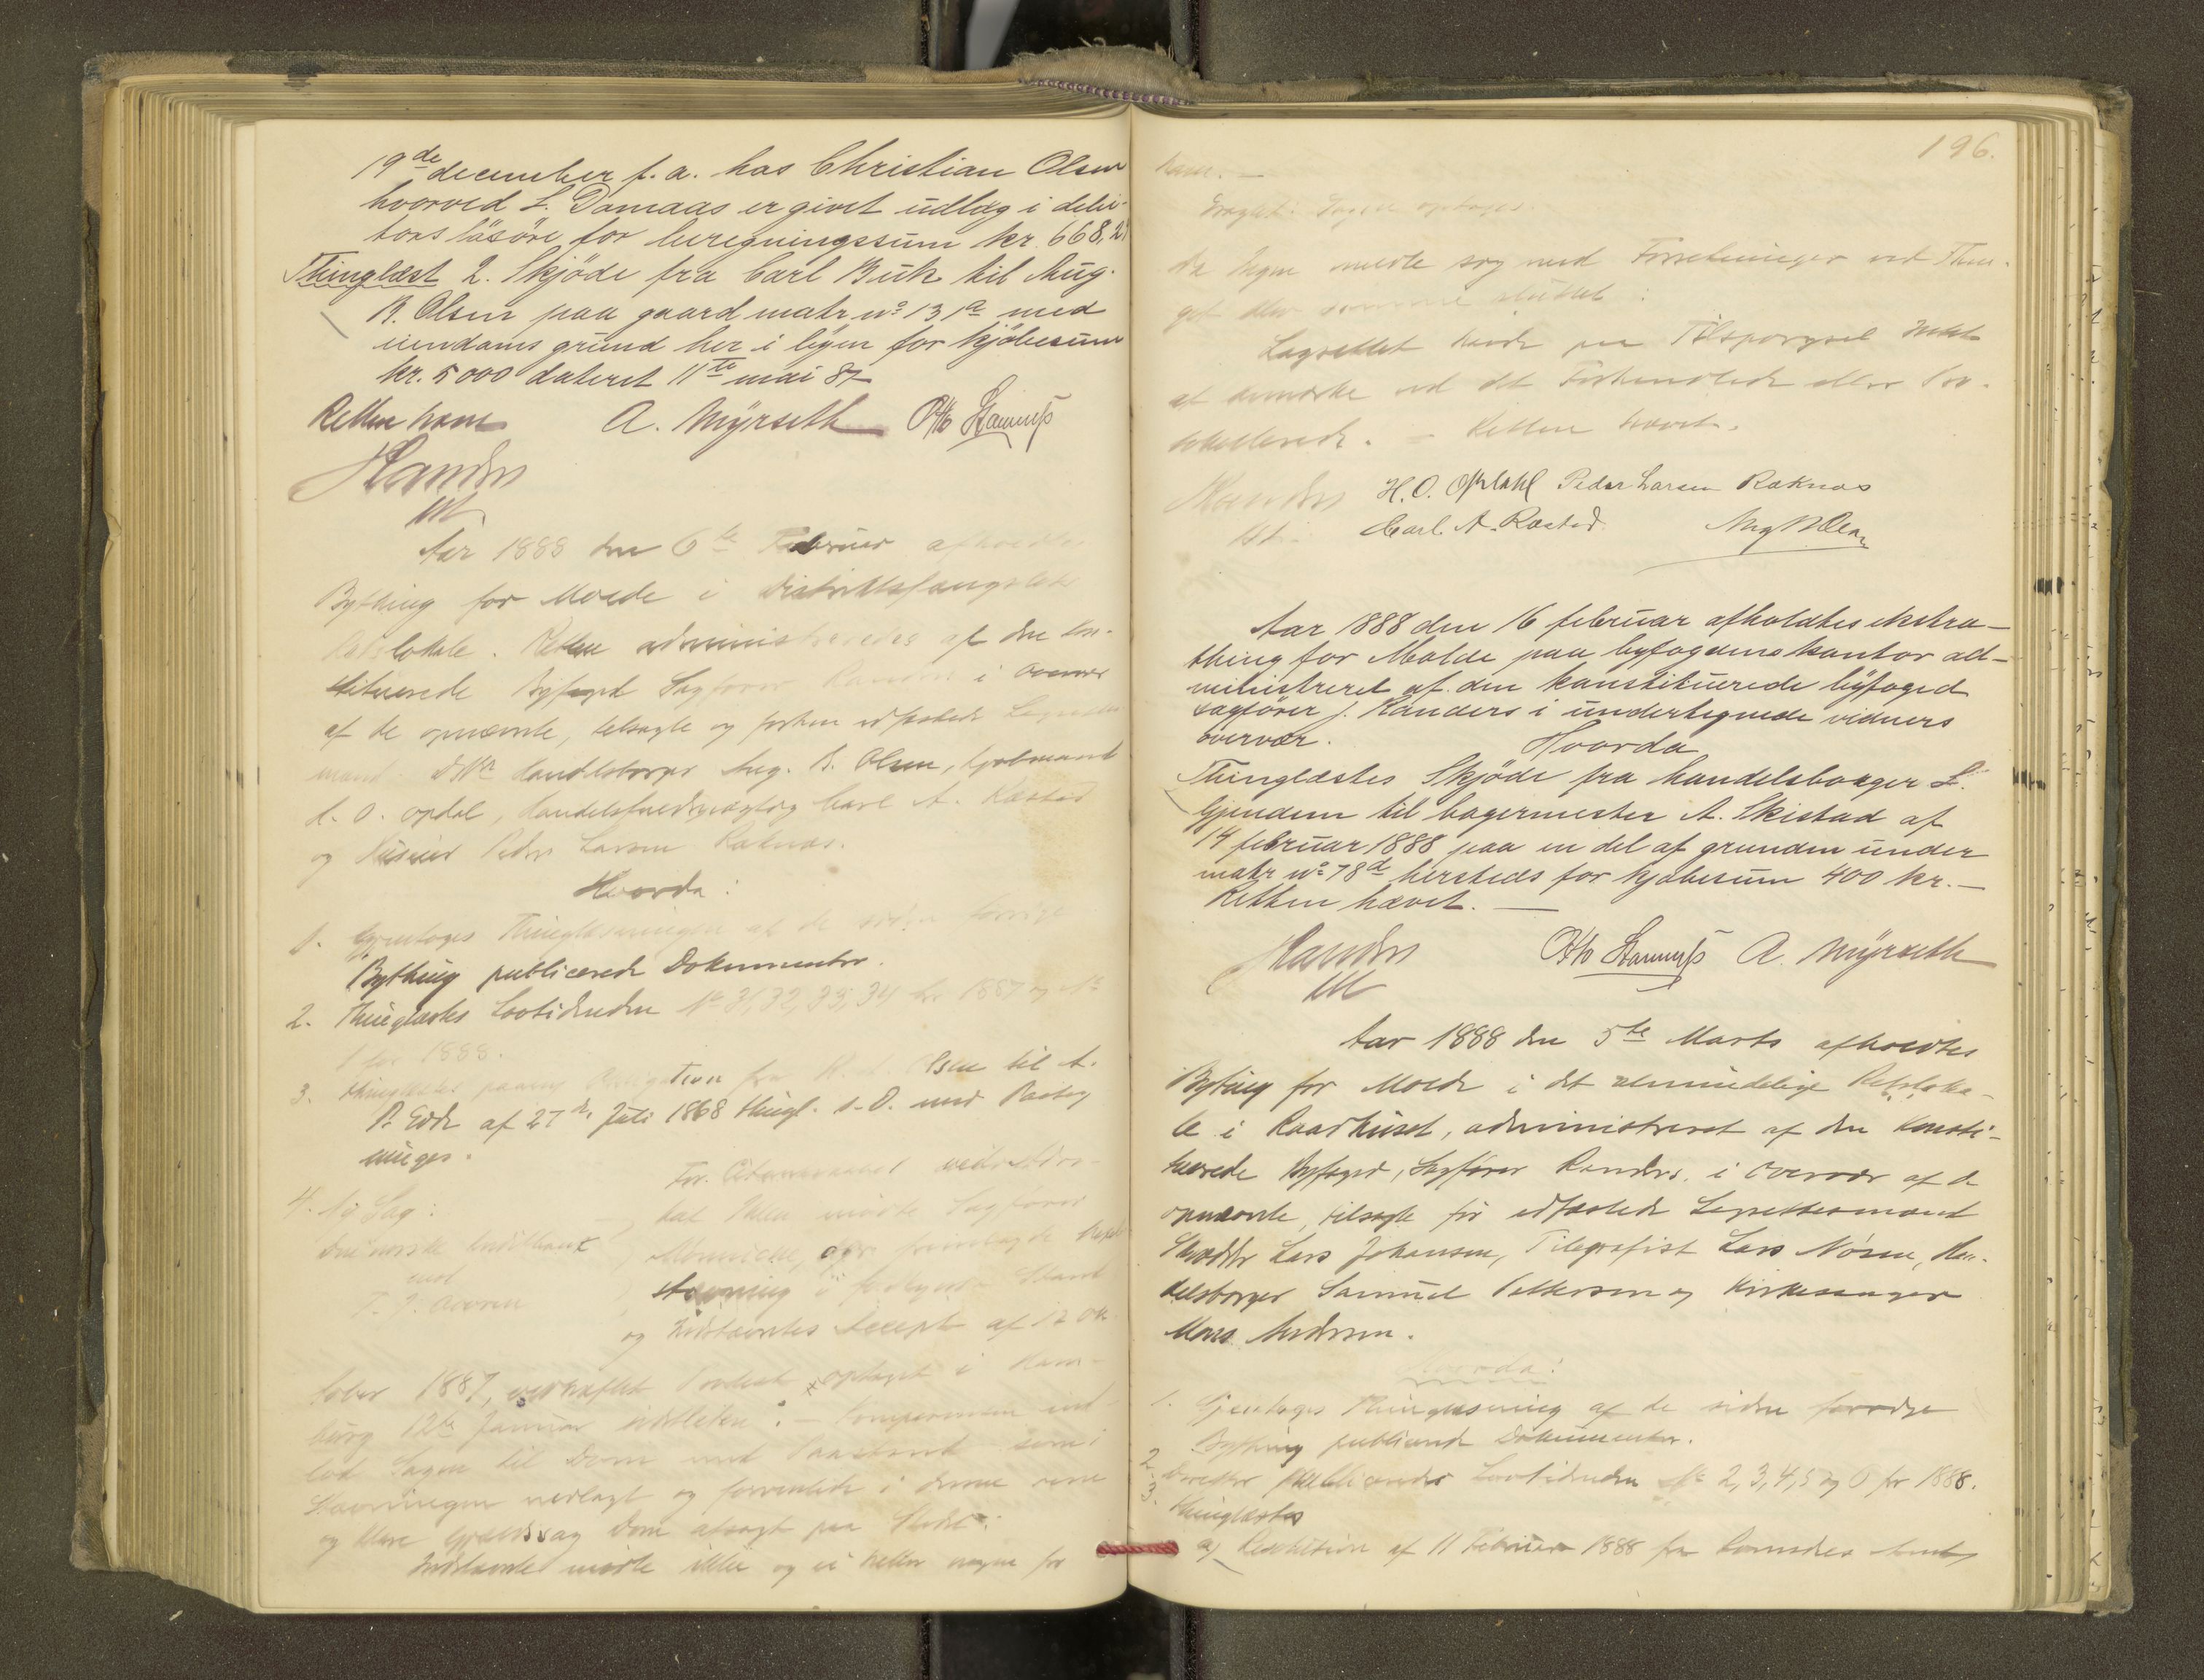 19de december f. a. hos Christian Olsen
hvorved L. Damaas er givet udlæg i debi-
tors løsøre for beregningssum kr. 668,2
Thinglæst 2. Skjöde fra Carl Buck til Aug.
B. Olsen paa gaard matr no 131a med
eiendomsgrund her i byen for kjøbesum
kr. 5000 dateret 11te mai 87
Retten hævet A. Myrseth Otto
Randers
kst.
Aar 1888 den 6te Februar afholdtes
Bything for Molde i Distriktsfængslets
Retslokale. Retten administreredes af den kon-
stituerede Byfoged Sagfører Randers i Overvær
af de opnævnte, tilsagte og forhen edfæstede
mænd: Handelsborger Aug. B. Olsen, Kjøbmand
H. O. Opdal, Handelsfuldmægtig Carl A. Ræstad
og Peder Larsen Raknæs.
Hvorda:
1. Gjentoges Thinglæsningen af de sidste forrige
Bything publicerede Dokumenter.
2. Thinglæstes Lovtidenden No 31, 32, 33, 34 for 1887 og No
1 for 1888.
3. Thinglæstes Obligation fra Olsen til A.
P. Eide af 27de Juli 1868 thingl. s. D. med Paateg-
ninger.
4. Ny Sag:
Den norske Creditbank
mod
mødte Sagfører
fremlagde
Stævning i
og Indstævntes Accept af 12 Ok-
tober 1887, vedhæftet Protest optaget i Ham-
burg 12te Januar sidstleden. - Comparenten ind-
lod Sagen til Dom med Paastand som i
Stævningen nedlagt og forventede i denne rene
og klare Gjældssag Dom afsagt paa Stedet.
Indstævnte mødte ikke og ei heller nogen for
196.
ham. -
Eragtet: Sagen optages.
Da Ingen meldte sig med Forretninger ved Thin-
get blev samme sluttet:
Lagrettet havde paa Tilspørgsel Intet
at bemærke ved det Forhandlede eller Pro-
tokollerede. - Retten hævet.
Randers H. O. Opdahl Peder Larsen Raknæs
kst. Carl. A. Ræstad. Aug B Olsen
Aar 1888 den 16 februar afholdtes ekstra-
thing for Molde paa byfogdens kontor ad-
ministreret af den konstituerede byfoged
sagfører J. Randers i undertegnede vidners
overvær.
Hvorda
Thinglæstes Skjöde fra handelsborger L.
Gjendem til bagermester A. Skistad af
14 februar 1888 paa en del af grunden under
matr no 78d hersteds for kjøbesum 400 kr. -
Retten hævet. -
Randers Otto A. Myrseth
kst
Aar 1888 den 5te Marts afholdtes
Bything for Molde i det almindelige Retsloka-
le i Raadhuset, administreret af den Konsti-
tuerede Byfoged, Sagfører Randers, i Overvær af de
opnævnte, tilsagte før edfæstede Lagrettesmænd
Skrædder Lars Johansen, Telegrafist Lars Nösen, Han-
delsborger Samuel Pettersen og Kirkesanger
Mons Andersen.
Hvorda:
1. Gjentoges Thinglæsning af de siden forrige
Bything publicerede Dokumenter.
2. Derefter publiceredes Lovtidenden No 2, 3, 4, 5 og 6 for 1888.
3. Thinglæstes
a) Resolution af 11 Februar 1888 fra Romsdals Amt